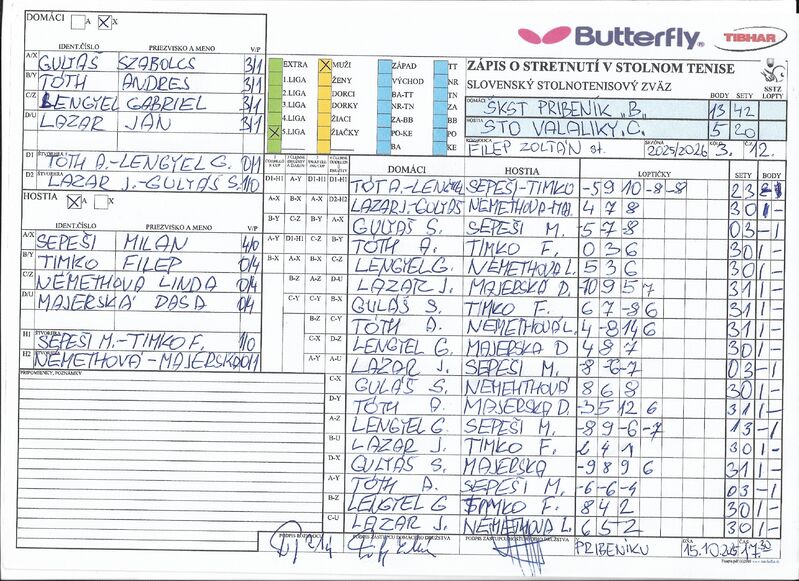 DOMÁCI A X
IDENT.ČÍSLO PRIEZVISKO A MENO V/P
A/X GULYÁŠ SZABOLCS 3/1
B/Y TÓTH ANDRES 3/1
C/Z LENGYEL GABRIEL 3/1
D/U LAZAR JÁN 3/1
D1 ŠTVORHRA TÓTH A.-LENGYEL G. 0/1
D2 ŠTVORHRA LAZAR J.-GULYÁŠ S. 1/0
HOSTIA A X
IDENT.ČÍSLO PRIEZVISKO A MENO V/P
A/X SEPEŠI MILAN 4/0
B/Y TIMKO FILEP 0/4
C/Z NÉMETHOVÁ LINDA 0/4
D/U MAJERSKÁ DAŠA 0/4
H1 ŠTVORHRA SEPEŠI M.-TIMKO F. 1/0
H2 ŠTVORHRA NÉMETHOVÁ-MAJERSKÁ 0/1
PRIPOMIENKY, POZNÁMKY
Butterfly
TIBHAR
EXTRA MUŽI ZÁPAD TT
1.LIGA ŽENY VÝCHOD NR
2.LIGA DORCI BA-TT TN
3.LIGA DORKY NR-TN ZA
4.LIGA ŽIACI ZA-BB BB
5.LIGA ŽIAČKY PO-KE PO
BA KE
ZÁPIS O STRETNUTÍ V STOLNOM TENISE
SLOVENSKÝ STOLNOTENISOVÝ ZVÄZ
SSTZ
BODY SETY LOPTY
DOMÁCI ŠKST PRIBENÍK „B„ 13 42
HOSTIA STO VALALIKY „C„ 5 20
FILEP ZOLTÁN st. SEZÓNA 2025/2026 KOLO 3. Č.Z. 12.
DOMÁCI HOSTIA LOPTIČKY SETY BODY
D1-H1 TÓTH A.-LENGYEL SEPEŠI-TIMKO -5 9 10 -8 -8 2 3 -1
D2-H2 LAZAR J.-GULYÁŠ NÉMETHOVÁ-MAJ. 4 7 8 3 0 1 -
A-X GULYÁŠ S. SEPEŠI M. -5 -7 -8 0 3 - 1
B-Y TÓTH A. TIMKO F. 0 3 6 3 0 1 -
C-Z LENGYEL G. NÉMETHOVÁ L. 5 3 6 3 0 1 -
D-U LAZAR J. MAJERSKÁ D. -10 9 5 7 3 1 1 -
A-Y GULÁŠ S. TIMKO F. 6 7 -8 6 3 1 1 -
B-Z TÓTH A. NÉMETHOVÁ L. 4 -8 14 6 3 1 1 -
C-U LENGYEL G. MAJERSKÁ D 4 8 7 3 0 1 -
LAZAR J. SEPEŠI M. -8 -6 -7 0 3 - 1
C-X GULÁŠ S. NEMENTHOVÁ 8 6 8 3 0 1 -
D-Y TÓTH A. MAJERSKÁ D. -3 5 12 6 3 1 1 -
A-Z LENGYEL G. SEPEŠI M. -8 9 -6 -7 1 3 - 1
B-U LAZAR J. TIMKO F. 2 4 1 3 0 1 -
D-X GULYÁŠ S. MAJERSKA -9 8 9 6 3 1 1 -
A-Y TÓTH A. SEPEŠI M. -6 -6 -4 0 3 - 1
B-Z LENGYEL G TIMKO F. 8 4 2 3 0 1 -
C-U LAZAR J. NÉMETHOVÁ L. 6 5 2 3 0 1 -
PODPIS ROZHODCU
PODPIS ZÁSTUPCU HOSŤUJÚCEHO DRUŽSTVA
V PRIBENÍKU DŇA 15.10.2025 ČAS 17.30